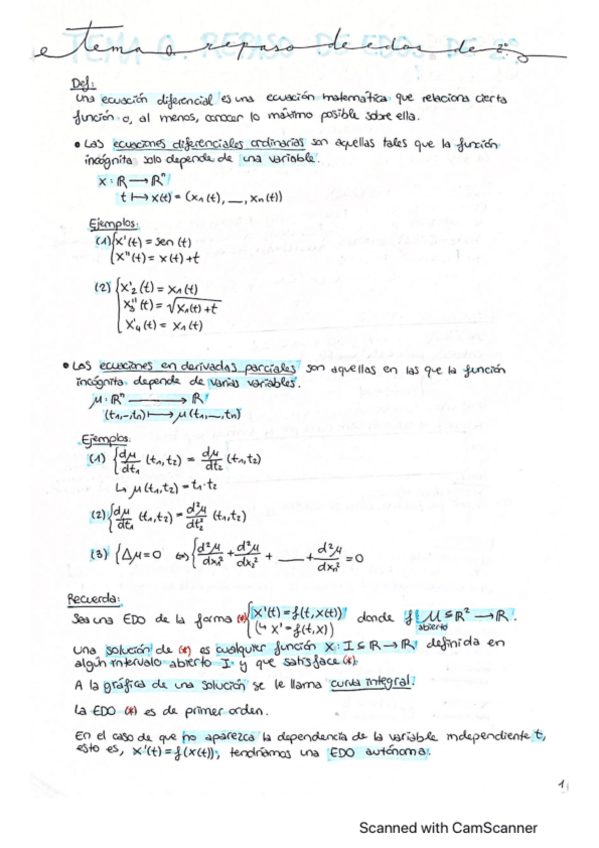 Tema 0. repaso de edos de 2º
Def:
Una ecuación diferencial es una ecuación matemática que relaciona cierta
función o, al menos, conocer lo máximo posible sobre ella.
• Las ecuaciones diferenciales ordinarias son aquellas tales que la función
incógnita solo depende de una variable.
x: ℝ ⟶ ℝⁿ
t ⟼ x(t) = (x₁(t), __, xₙ(t))
Ejemplos:
(1) { x'(t) = sen(t)
x''(t) = x(t)+t
(2) { x'₂(t) = x₁(t)
x''₃(t) = √(x₁(t)+t)
x'₄(t) = x₁(t)
• Las ecuaciones en derivadas parciales son aquellas en las que la función
incógnita depende de varias variables.
μ: ℝⁿ ⟶ ℝ
(t₁,–,tₙ) ⟼ μ(t₁,__,tₙ)
Ejemplos:
(1) { dμ/dt₁ (t₁,t₂) = dμ/dt₂ (t₁,t₂)
↳ μ(t₁,t₂) = t₁·t₂
(2) { dμ/dt₁ (t₁,t₂) = d²μ/dt₂² (t₁,t₂)
(3) { Δμ=0 ⇔ { d²μ/dx₁² + d²μ/dx₂² + ___ + d²μ/dxₙ² = 0
Recuerda:
Sea una EDO de la forma (*) { x'(t) = f(t,x(t)) donde f: μ ⊆ ℝ² ⟶ ℝ.
(↳ x' = f(t,x)) abierto
Una solución de (*) es cualquier función x: I ⊆ ℝ → ℝ definida en
algún intervalo abierto I y que satisface (*).
A la gráfica de una solución se le llama curva integral.
La EDO (*) es de primer orden.
En el caso de que no aparezca la dependencia de la variable independiente t,
esto es, x'(t) = f(x(t)), tendríamos una EDO autónoma.
1
Scanned with CamScanner